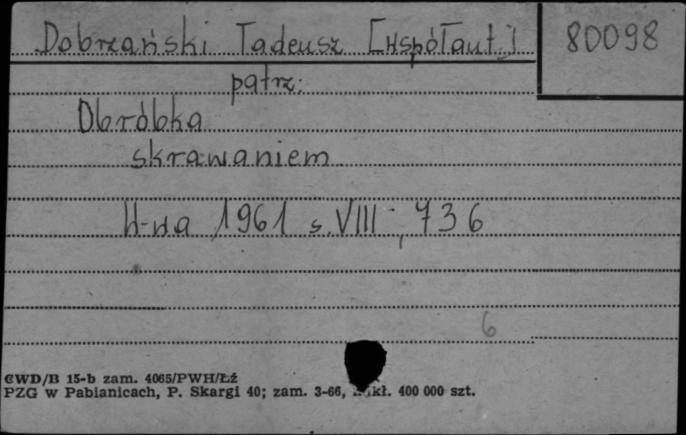 Dobrzański Tadeusz [współaut.]
80098
patrz:
Obróbka
skrawaniem
W-wa 1961 s. VIII, 736
6
CWD/B 15-b zam. 4065/PWH/Łź
PZG w Pabianicach, P. Skargi 40; zam. 3-66, kł. 400 000 szt.